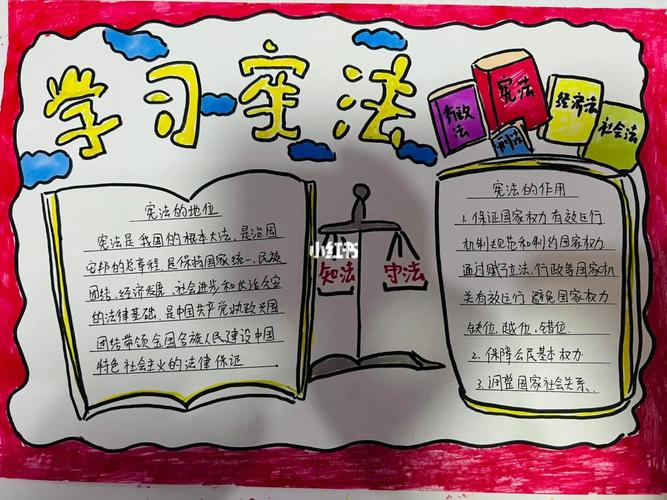 学习宪法
行政法
宪法
刑法
经济法
社会法
宪法的地位
宪法是我国的根本大法，是治国
安邦的总章程，是保持国家统一、民族
团结、经济发展、社会进步和长治久安
的法律基础，是中国共产党执政兴国
团结带领全国各族人民建设中国
特色社会主义的法律保证
小红书
知法
守法
宪法的作用
1.保证国家权力有效运行
机制规范和制约国家权力
通过赋
立法、行政等国家机
关有效运行 避免国家权力
缺位、越位、错位.
2.保障公民基本权力
3.调整国家社会关系.